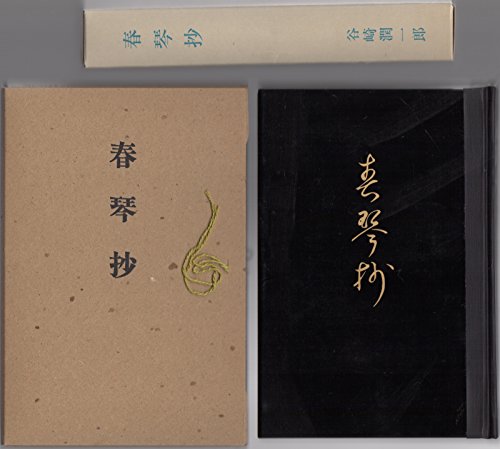 春琴抄 谷崎潤一郎
春琴抄
春琴抄